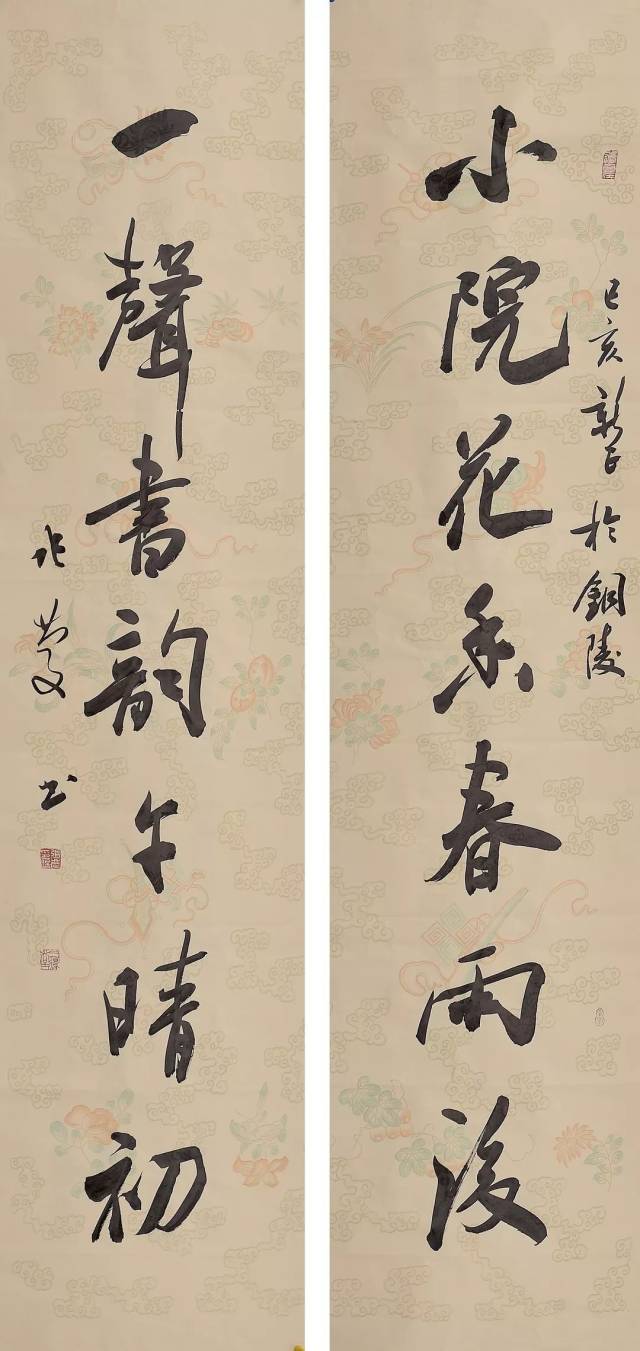 小院花香春雨後
己亥新正於銅陵
一聲書韵午晴初
書